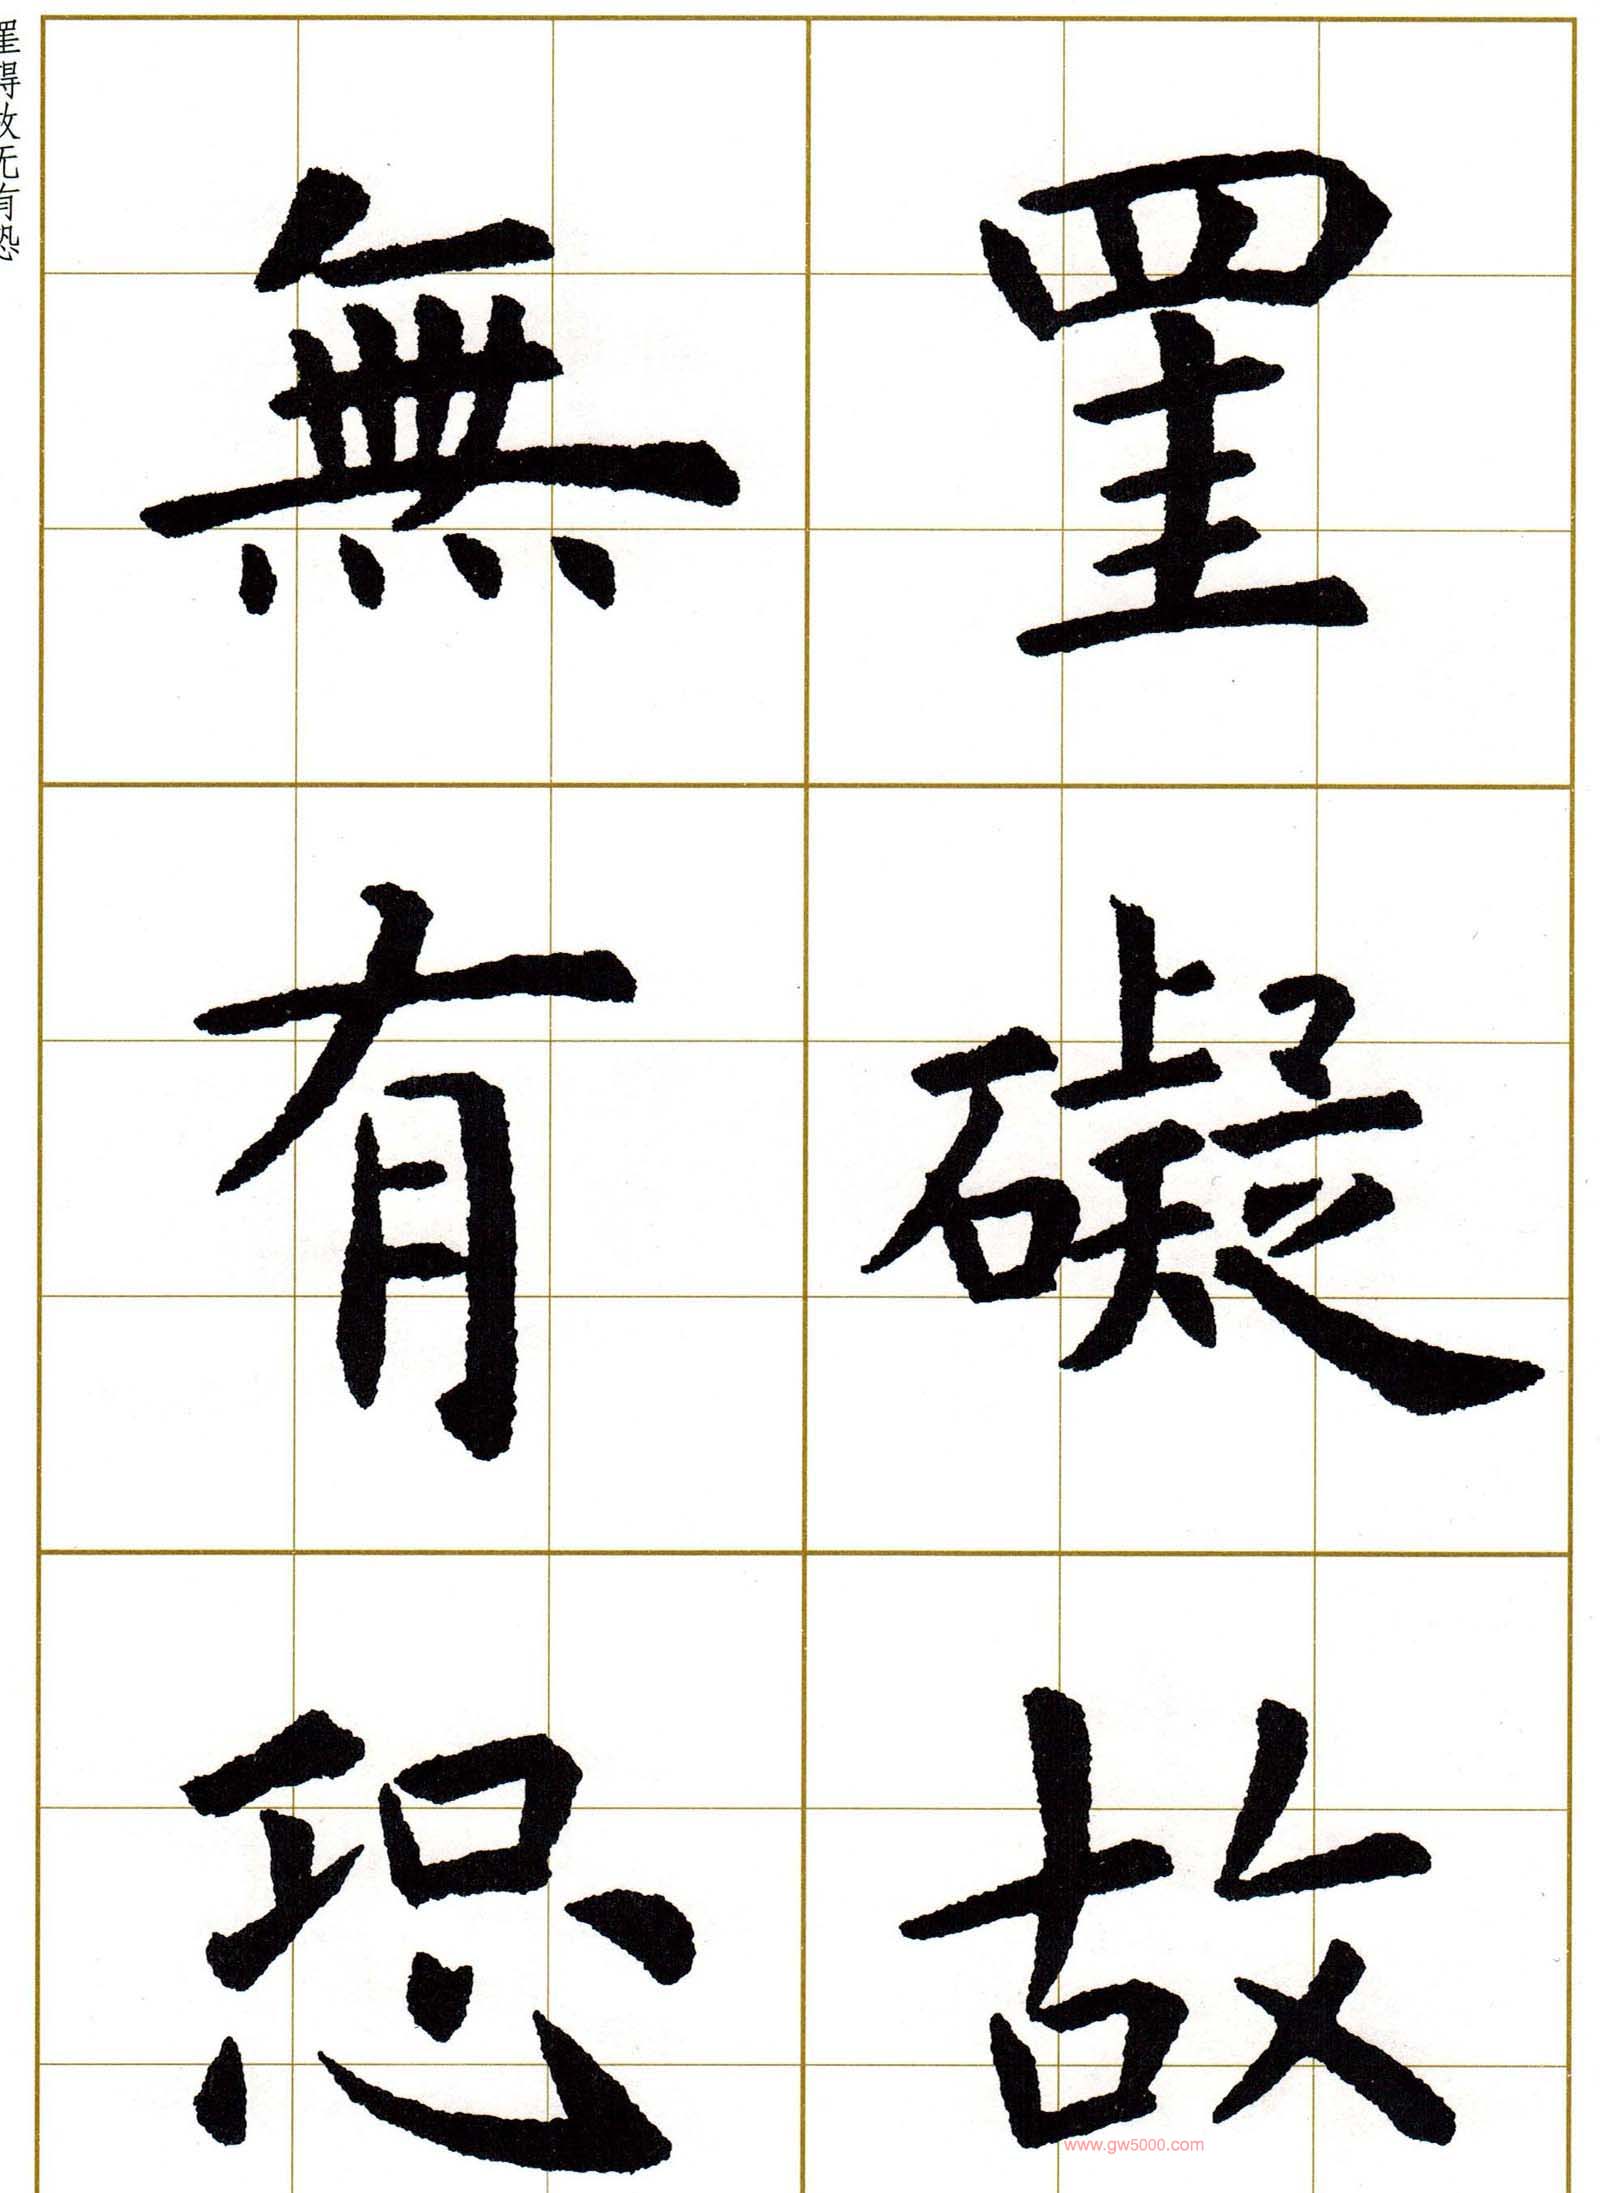 罣礙故
無有恐
罣得故无有恐
www.gw5000.com